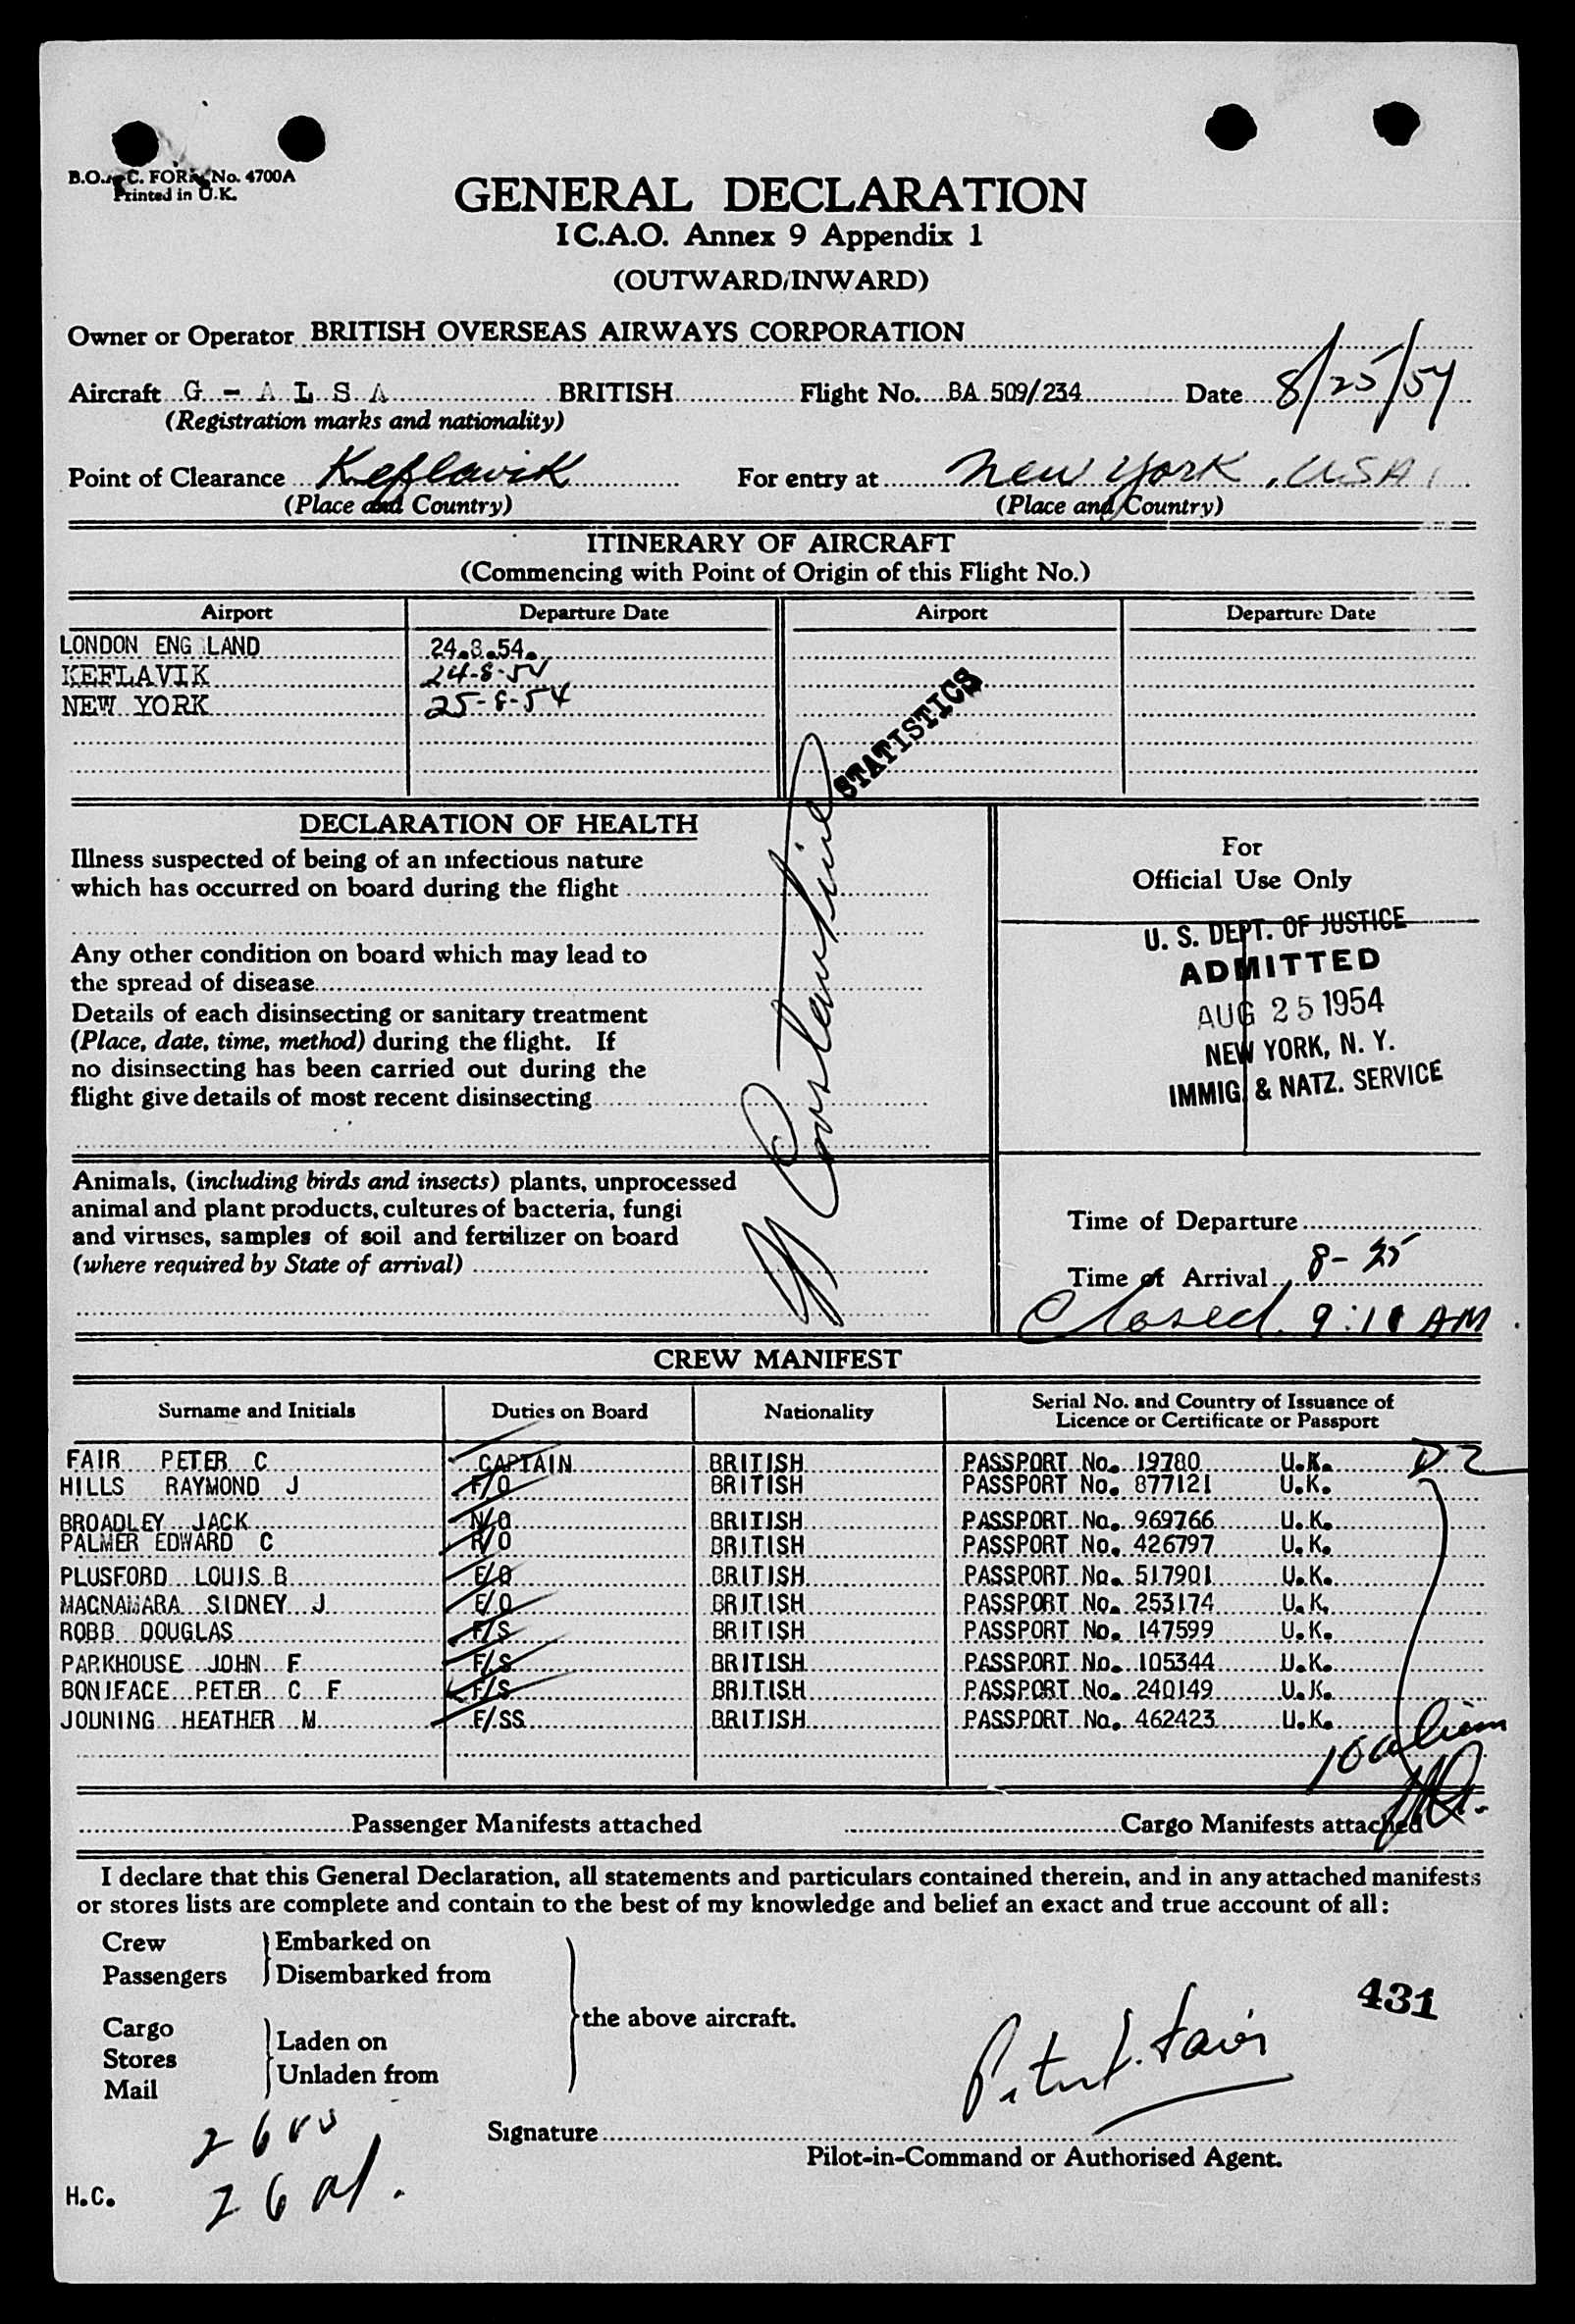 B.O.A.C. FORM No. 4700A
Printed in U.K.
GENERAL DECLARATION
I C.A.O. Annex 9 Appendix 1
(OUTWARD/INWARD)
Owner or Operator BRITISH OVERSEAS AIRWAYS CORPORATION
Aircraft G - A L S A BRITISH Flight No. BA 509/234 Date 8/25/54
(Registration marks and nationality)
Point of Clearance Keflavik For entry at New York, USA
(Place and Country) (Place and Country)
ITINERARY OF AIRCRAFT
(Commencing with Point of Origin of this Flight No.)
Airport Departure Date Airport Departure Date
LONDON ENGLAND 24.8.54.
KEFLAVIK 24-8-54
NEW YORK 25-8-54
STATISTICS
DECLARATION OF HEALTH
Illness suspected of being of an infectious nature
which has occurred on board during the flight
Any other condition on board which may lead to
the spread of disease
Details of each disinsecting or sanitary treatment
(Place, date, time, method) during the flight. If
no disinsecting has been carried out during the
flight give details of most recent disinsecting
Animals, (including birds and insects) plants, unprocessed
animal and plant products, cultures of bacteria, fungi
and viruses, samples of soil and fertilizer on board
(where required by State of arrival)
Constantine
For
Official Use Only
U. S. DEPT. OF JUSTICE
ADMITTED
AUG 25 1954
NEW YORK, N. Y.
IMMIG. & NATZ. SERVICE
Time of Departure
Time of Arrival 8-25
Closed 9:11 AM
CREW MANIFEST
Surname and Initials Duties on Board Nationality Serial No. and Country of Issuance of Licence or Certificate or Passport
FAIR PETER C CAPTAIN BRITISH PASSPORT No. 19780 U.K. D2
HILLS RAYMOND J F/O BRITISH PASSPORT No. 877121 U.K.
BROADLEY JACK N/O BRITISH PASSPORT No. 969766 U.K.
PALMER EDWARD C R/O BRITISH PASSPORT No. 426797 U.K.
PLUSFORD LOUIS B E/O BRITISH PASSPORT No. 517901 U.K.
MACNAMARA SIDNEY J E/O BRITISH PASSPORT No. 253174 U.K.
ROBB DOUGLAS F/S BRITISH PASSPORT No. 147599 U.K.
PARKHOUSE JOHN F F/S BRITISH PASSPORT No. 105344 U.K.
BONIFACE PETER C F F/S BRITISH PASSPORT No. 240149 U.K.
JOUNING HEATHER M F/SS BRITISH PASSPORT No. 462423 U.K.
10 alien
Passenger Manifests attached Cargo Manifests attached
I declare that this General Declaration, all statements and particulars contained therein, and in any attached manifests
or stores lists are complete and contain to the best of my knowledge and belief an exact and true account of all:
Crew Embarked on
Passengers Disembarked from
the above aircraft.
Cargo Laden on
Stores
Mail Unladen from
431
Peter C. Fair
Signature
Pilot-in-Command or Authorised Agent.
H.C.